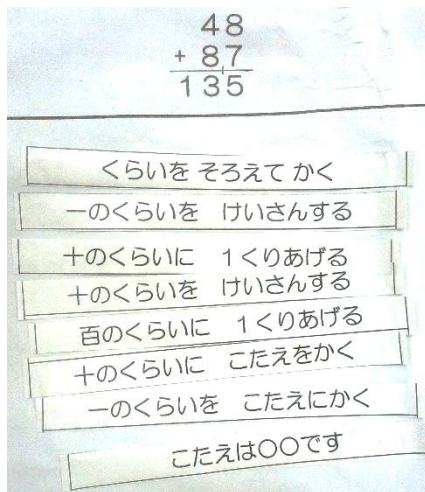 48
+ 87
135
くらいを そろえて かく
一のくらいを けいさんする
十のくらいに 1くりあげる
十のくらいを けいさんする
百のくらいに 1くりあげる
十のくらいに こたえをかく
一のくらいを こたえにかく
こたえは〇〇です